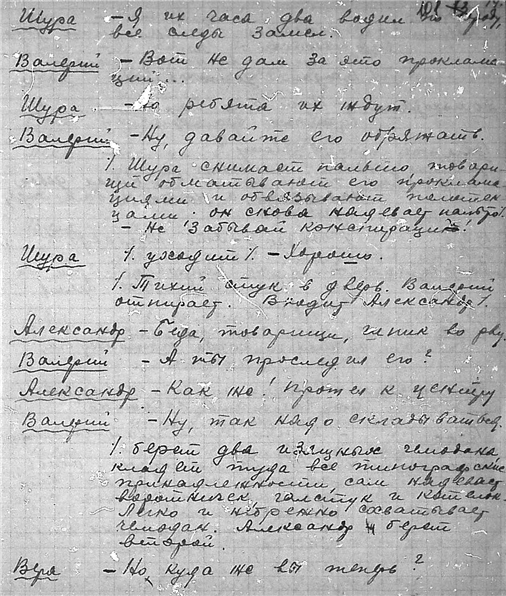 Шура – Я их часа два водил по
все следы замел.
Валерий – Вот не дам за это прокламаций...
Шура – Но, ребята их ждут.
Валерий – Ну, давайте его обряжать.
/. Шура снимает пальто, товари-
щи обматывают его проклама-
циями и обвязывают полотен-
цами. он снова надевает пальто/.
– Не забывай конспирации!
Шура /. уходит/. – Хорошо.
/. Тихий стук в дверь. Валерий
отпирает. Входит Александр/.
Александр – Беда, товарищи, шпик во дв.
Валерий – А ты проследил его?
Александр – Как же! Прошел к центру
Валерий – Ну, так надо складываться.
/. берет два изящных чемодана,
кладет туда все типографские
принадлежности, сам надевает
воротничек, галстук и котелок.
Легко и небрежно схватывает
чемодан. Александр берет
второй.
Вера – Но, куда же вы теперь?